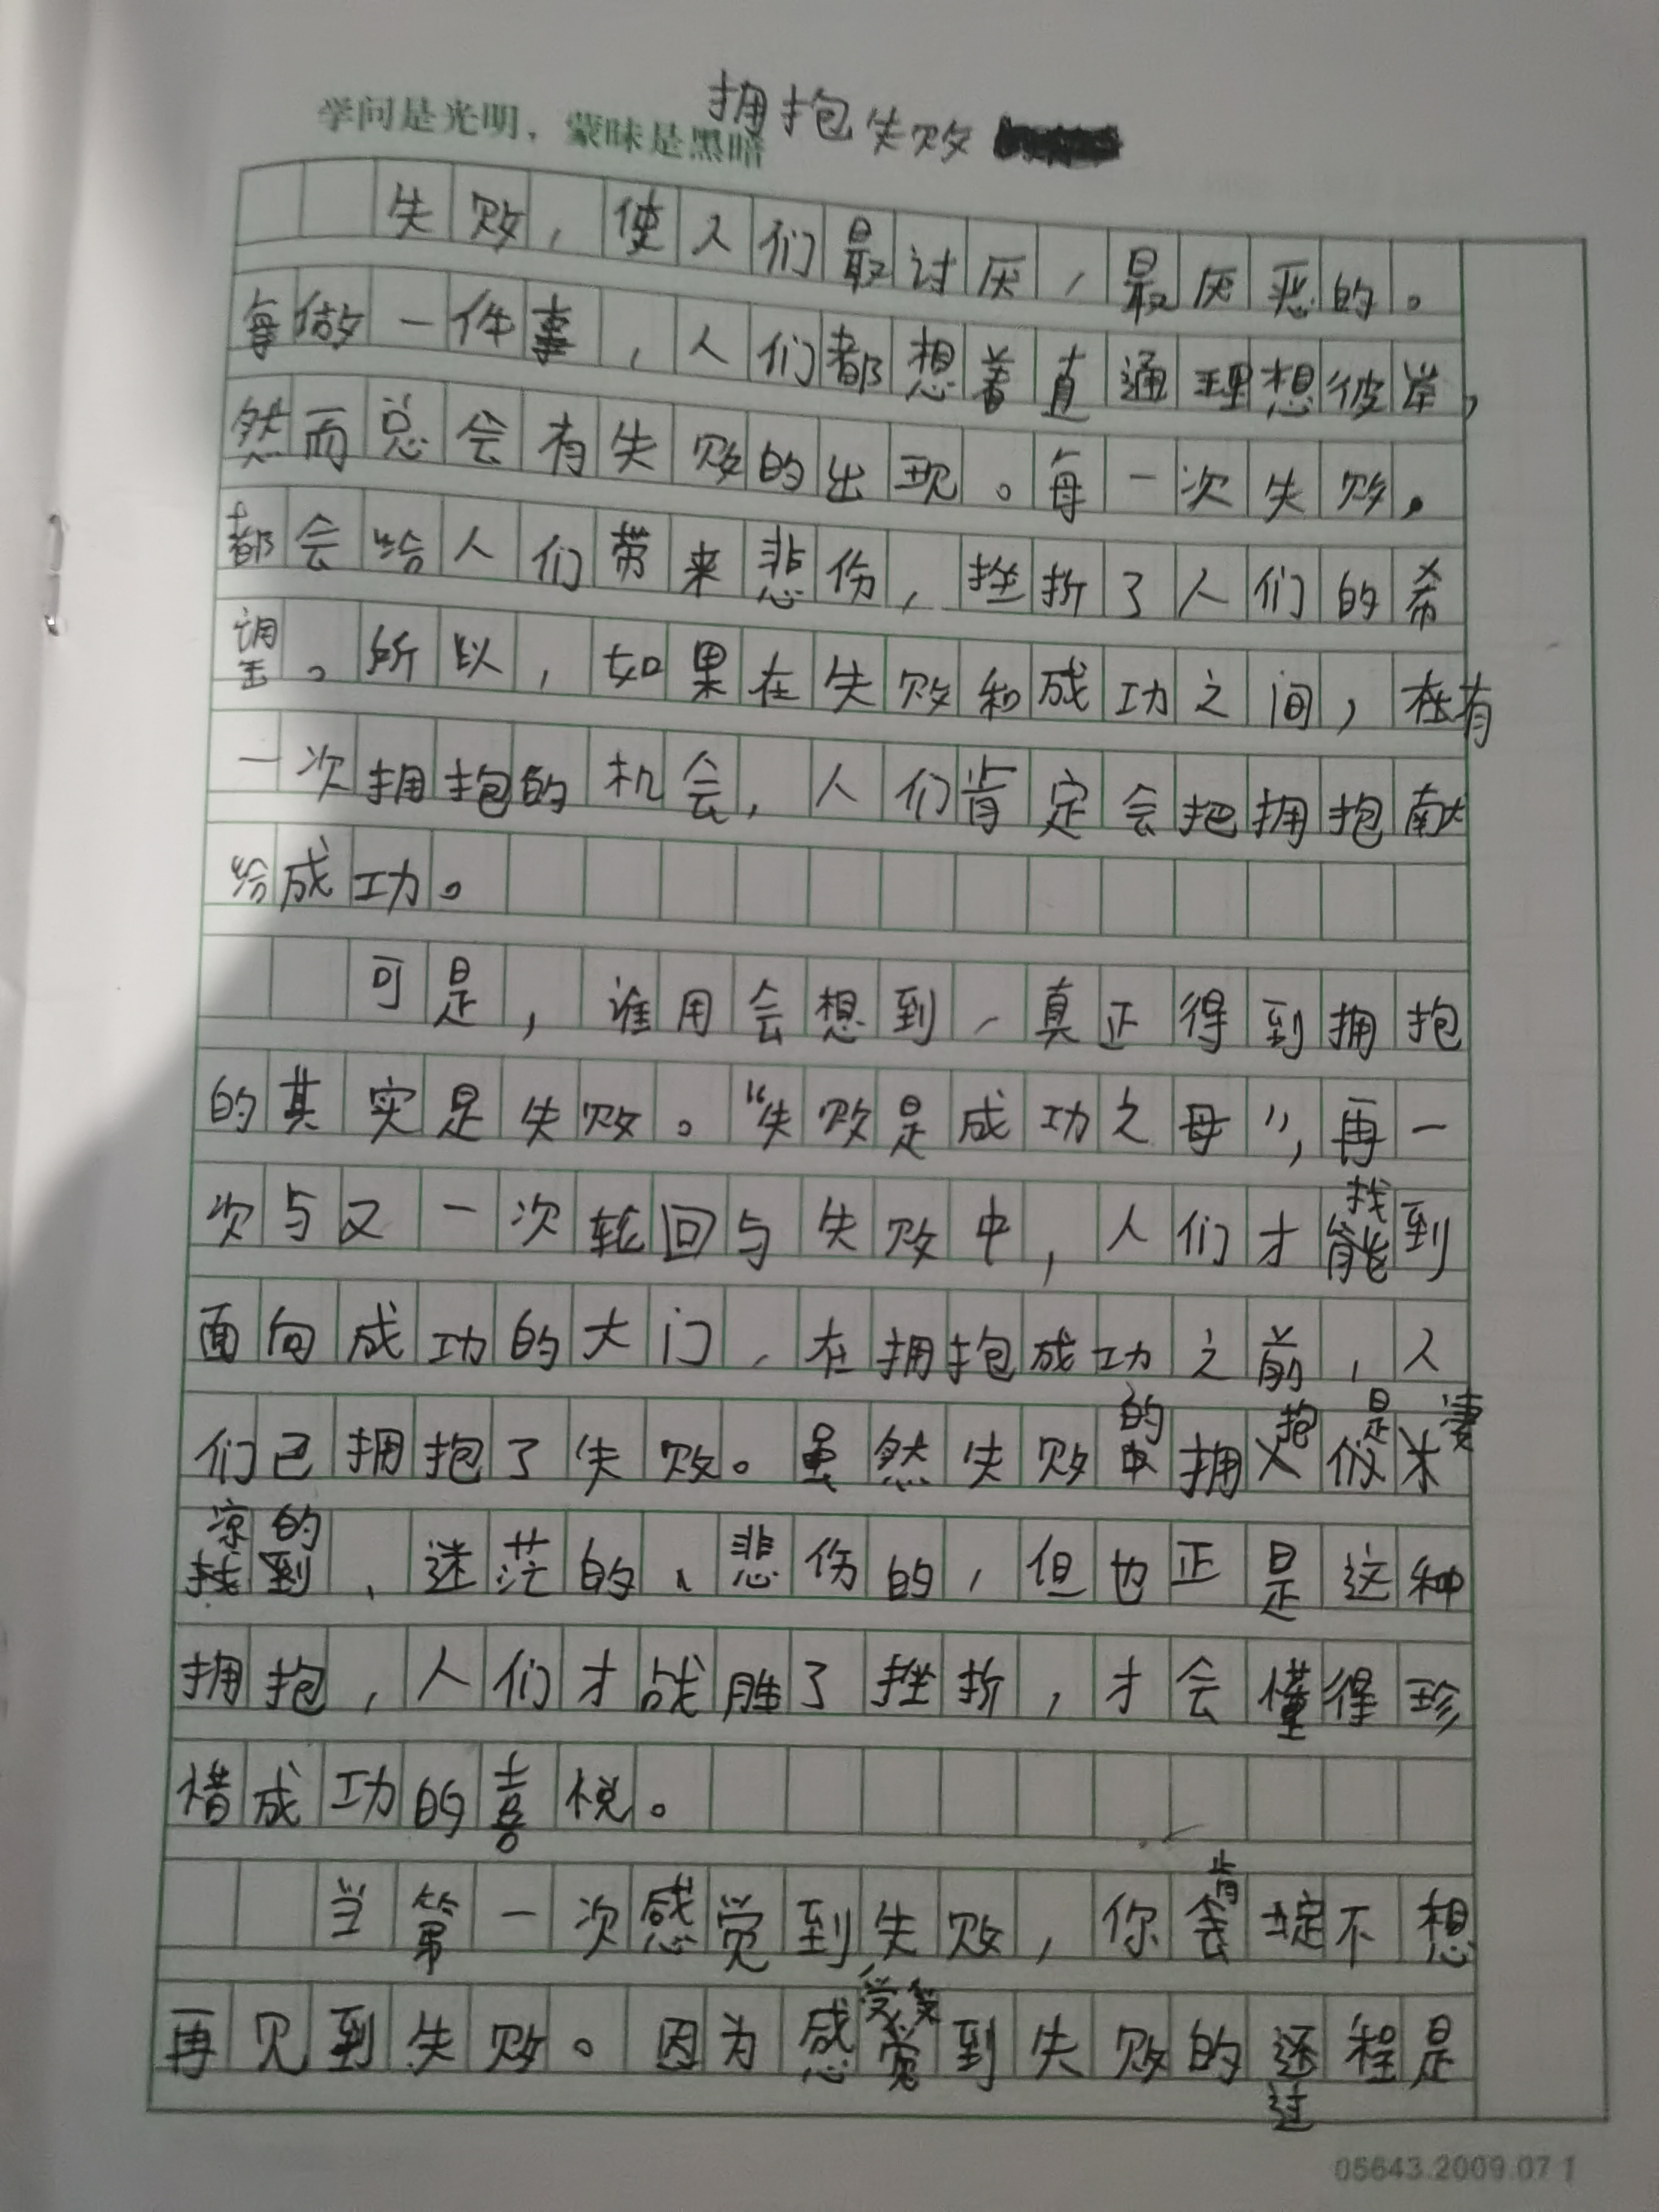 拥抱失败
学问是光明，蒙昧是黑暗
失败，使人们最讨厌，最厌恶的。
每做一件事，人们都想着直通理想彼岸，
然而总会有失败的出现。每一次失败，
都会给人们带来悲伤，挫折了人们的希
望。所以，如果在失败和成功之间，在有
一次拥抱的机会，人们肯定会把拥抱献
给成功。
可是，谁用会想到，真正得到拥抱
的其实是失败。“失败是成功之母”，再一
次与又一次轮回与失败中，人们才能找到
面向成功的大门，在拥抱成功之前，人
们已拥抱了失败。虽然失败的拥抱是凄
凉的、迷茫的、悲伤的，但也正是这种
拥抱，人们才战胜了挫折，才会懂得珍
惜成功的喜悦。
当第一次感觉到失败，你肯定不想
再见到失败。因为感受到失败的过程是
05643.2009.07 1